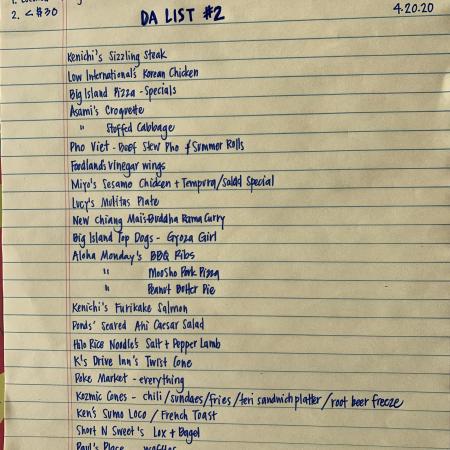 2. < $30
DA LIST #2
4.20.20
Kenichi's Sizzling Steak
Low International's Korean Chicken
Big Island Pizza - Specials
Asami's Croquette
" Stuffed Cabbage
Pho Viet - Beef Stew Pho & Summer Rolls
Foodland's Vinegar wings
Miyo's Sesame Chicken + Tempura/Salad Special
Lucy's Mulitas Plate
New Chiang Mai's Buddha Rama Curry
Big Island Top Dogs - Gyoza Girl
Aloha Monday's BBQ Ribs
" Mooshu Pork Pizza
" Peanut Butter Pie
Kenichi's Furikake Salmon
Ponds' Seared Ahi Caesar Salad
Hilo Rice Noodle's Salt + Pepper Lamb
K's Drive Inn's Twist Cone
Poke Market - everything
Kozmic Cones - chili/sundaes/fries/teri sandwich platter/root beer freeze
Ken's Sumo Loco / French Toast
Short N Sweet's Lox + Bagel
Paul's Place - waffles